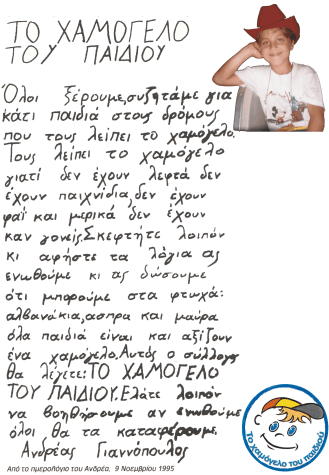 ΤΟ ΧΑΜΟΓΕΛΟ
ΤΟΥ ΠΑΙΔΙΟΥ
Όλοι ξέρουμε,συζητάμε για
κάτι παιδιά στους δρόμους
που τους λείπει το χαμόγελο.
Τους λείπει το χαμόγελο
γιατί δεν έχουν λεφτά δεν
έχουν παιχνίδια,δεν έχουν
φαΐ και μερικά δεν έχουν
καν γονείς.Σκεφτήτε λοιπόν
κι αφήστε τα λόγια ας
ενωθούμε κι ας δώσουμε
ότι μπορούμε στα φτωχά:
αλβανάκια,ασπρα και μαύρα
όλα παιδιά είναι και αξίζουν
ένα χαμόγελο.Αυτός ο σύλλογος
θα λέγετε:ΤΟ ΧΑΜΟΓΕΛΟ
ΤΟΥ ΠΑΙΔΙΟΥ.Ελάτε λοιπόν
να βοηθήσουμε αν ενωθούμε
όλοι θα τα καταφέρουμε.
Ανδρέας Γιαννόπουλος
Από το ημερολόγιο του Ανδρέα, 9 Νοεμβρίου 1995
Το χαμόγελο του παιδιού